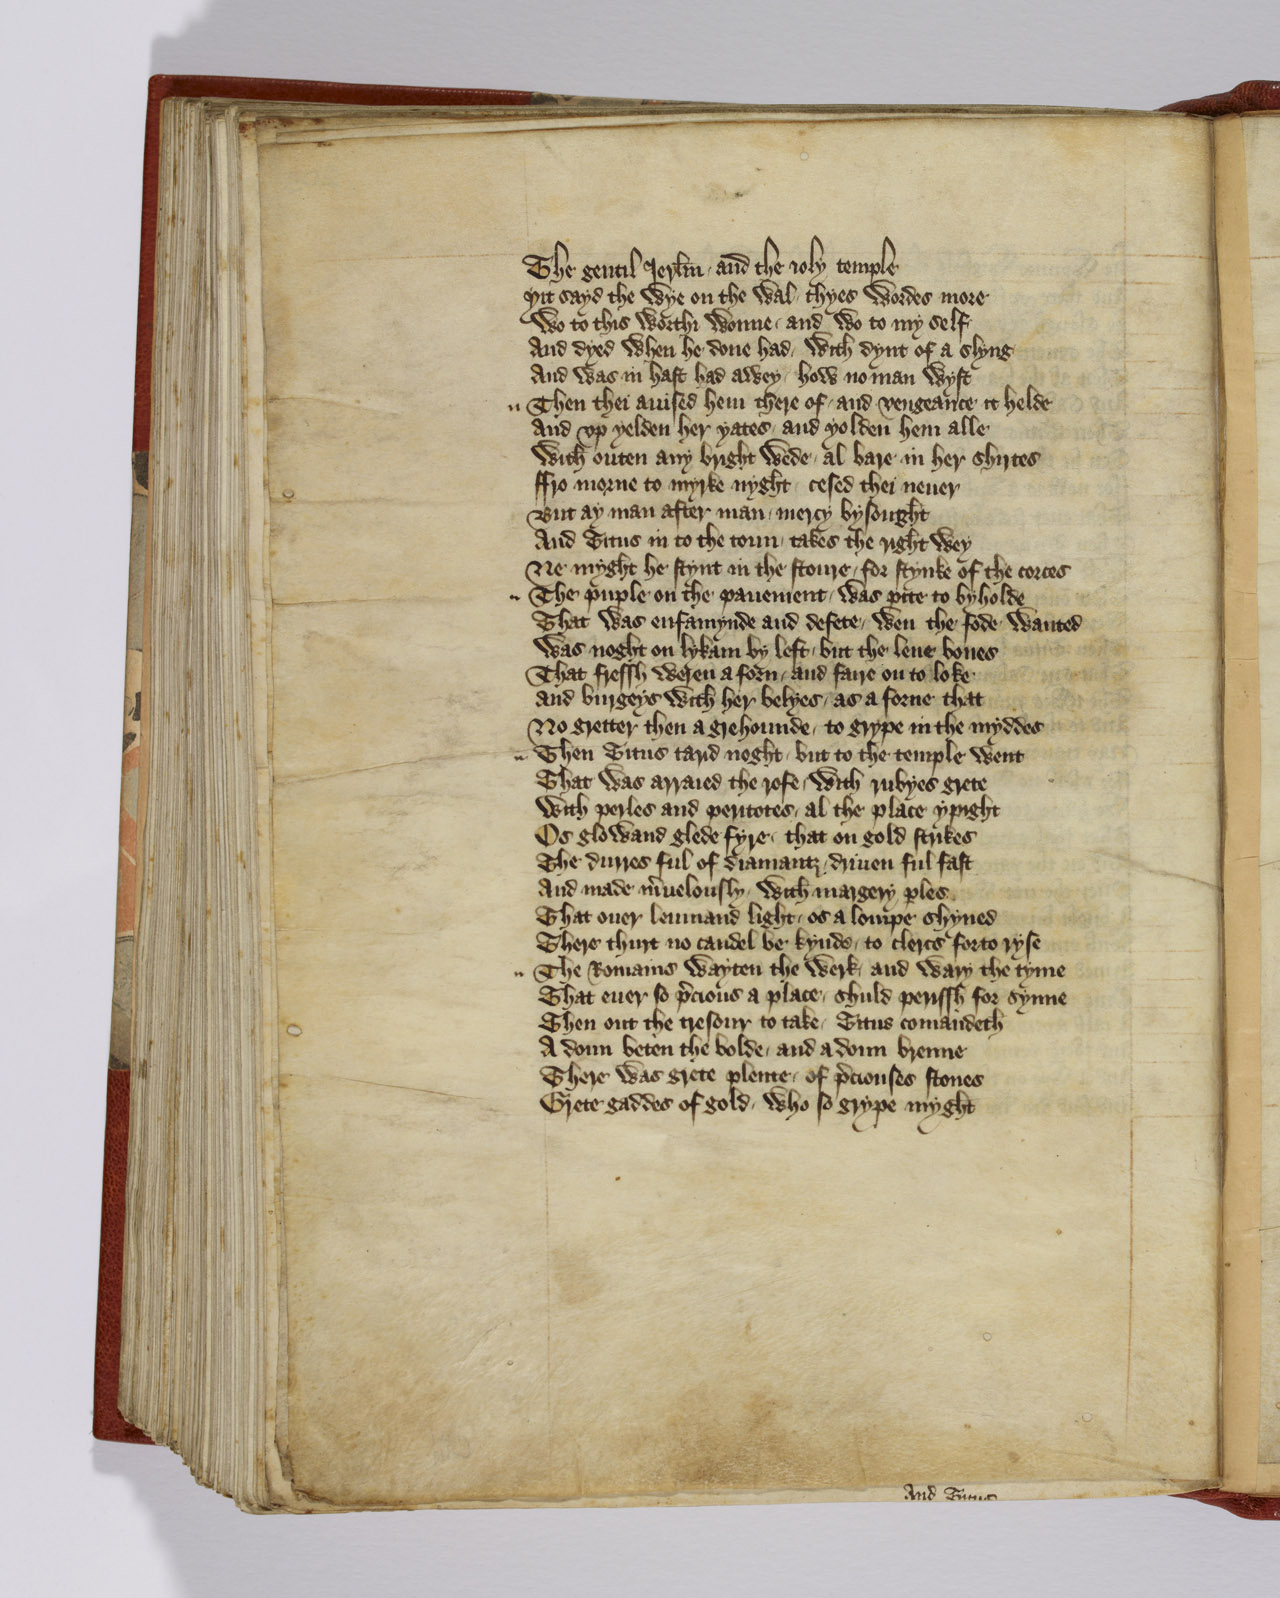 The gentil Jerłm / and the ioly temple
Yit sayd the wye on the wal / thyes wordes more
Wo to this worthi wonne / and wo to my self
And dyed when he done had / with dynt of a slyng
And was in hast had awey / how no man wyst
" Then thei auised hem there of / and vengeance it helde
And vp yelden her yates / and yolden hem alle
With outen any bright wede / al bare in her shirtes
ffro morne to myrke nyght / cesed thei neuer
But ay man after man / mercy bysought
And Titus in to the toun / takes the right wey
Ne myght he stynt in the stoure / for stynke of the corces
" The puple on the pauement / was pite to byholde
That was enfamynde and defete / wen the fode wanted
Was noght on lykam by left / but the lene bones
That fressh weren a forn / and faire on to loke
And burgeys with her belyes / as a forne that
No gretter then a grehounde / to grype in the myddes
" Then Titus tarid noght / but to the temple went
That was arraied the rofe / with rubyes grete
With perles and peritotes / al the place ypight
Os glowand glede fyre / that on gold strikes
The durres ful of diamantz / driuen ful fast
And made mͬuelously / with margery ples
That ouer lemmand light / os a lompe shyned
There thurt no candel be kynde / to clercs forto ryse
" The Romains wayten the werk / and wary the tyme
That euer so p̄cious a place / shuld perissh for synne
Then out the tresour to take / Titus comandeth
A doun beten the bolde / and a doun brenne
There was grete plente / of p̄ciouses stones
Grete gaddes of gold / who so grype myght
And Titus